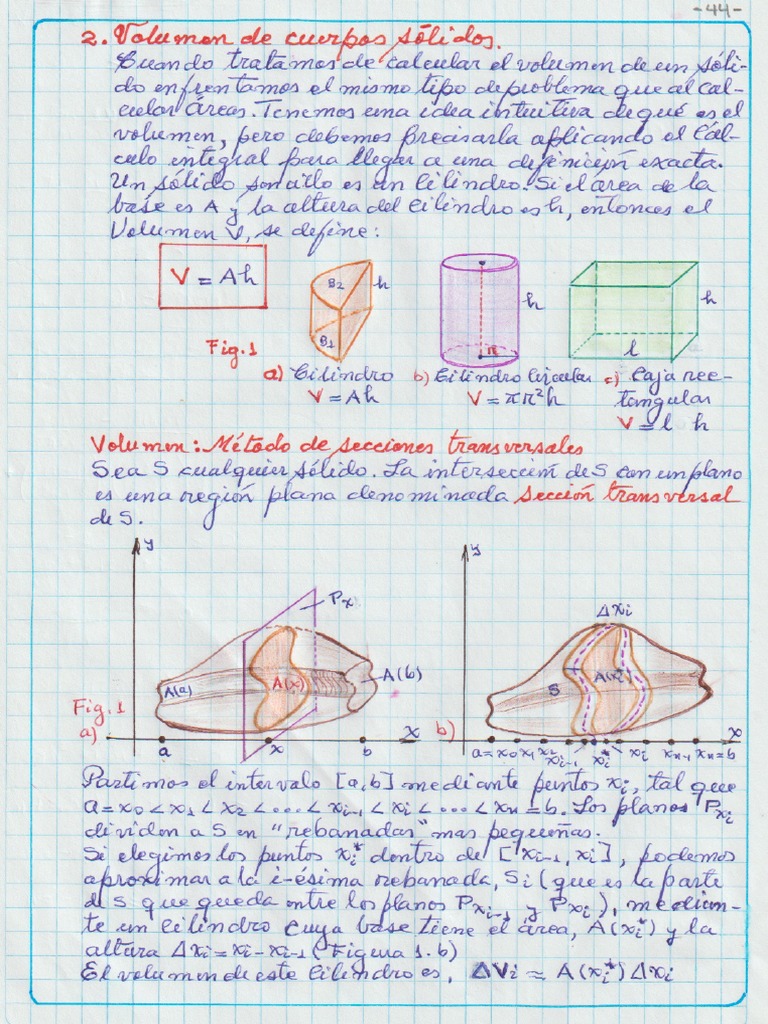 -44-
2. Volumen de cuerpos sólidos.
Cuando tratamos de calcular el volumen de un sóli-
do enfrentamos el mismo tipo de problema que al cal-
cular áreas. Tenemos una idea intuitiva de qué es el
volumen, pero debemos precisarla aplicando el Cál-
culo integral para llegar a una definición exacta.
Un sólido sencillo es un Cilindro. Si el área de la
base es A y la altura del cilindro es h, entonces el
Volumen V, se define:
V = Ah
B2
h
B1
h
r
h
l
Fig. 1
a) Cilindro b) Cilindro Circular c) Caja rec-
V = Ah V = πr²h tangular
V = l h
Volumen: Método de secciones transversales
Sea S cualquier sólido. La intersección de S con un plano
es una región plana denominada sección transversal
de S.
y
Px
A(a)
A(x)
A(b)
Fig. 1
a)
a x b x
y
Δxi
S
A(xi*)
b)
x
a=x0 x1 x2 xi-1 xi* xi xn-1 xn=b
Partimos el intervalo [a,b] mediante puntos xi, tal que
a = x0 < x1 < x2 < .... < xi-1 < xi < .... < xn = b. Los planos Pxi
dividen a S en "rebanadas" mas pequeñas.
Si elegimos los puntos xi* dentro de [xi-1, xi], podemos
aproximar a la i-ésima rebanada, Si (que es la parte
de S que queda entre los planos Pxi-1 y Pxi), median-
te un cilindro cuya base tiene el área, A(xi*) y la
altura Δxi = xi - xi-1 (Figura 1.b)
El volumen de este Cilindro es, ΔVi ≈ A(xi*)Δxi